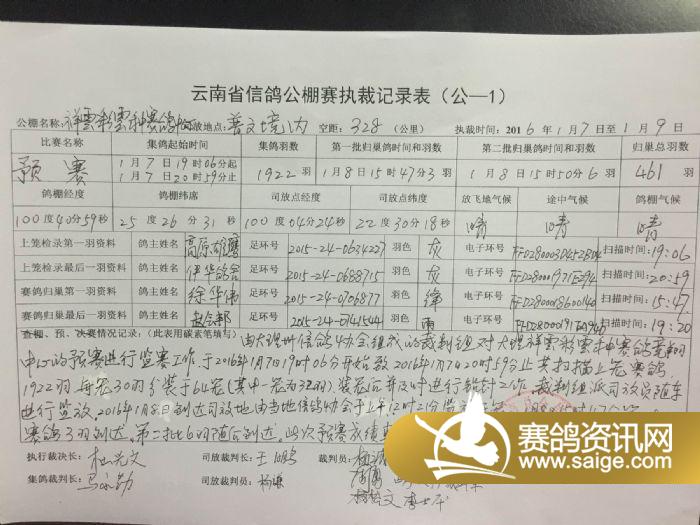 云南省信鸽公棚赛执裁记录表（公—1）
公棚名称: 祥云彩云种赛鸽 放地点: 普文境内 空距: 328 （公里） 执裁时间: 2016年1月7日至1月9日
比赛名称 集鸽起始时间 集鸽羽数 第一批归巢鸽时间和羽数 第二批归巢鸽时间和羽数 归巢总羽数
预赛 1月7日19时06分起 1922羽 1月8日15时47分3羽 1月8日15时50分6羽 461羽
1月7日20时59分止
鸽棚经度 鸽棚纬度 司放点经度 司放点纬度 放飞地气候 途中气候 鸽棚气候
100度40分59秒 25度26分31秒 100度04分24秒 22度30分18秒 晴 晴 晴
上笼检录第一羽资料 鸽主姓名 高原雄鹰 足环号 2015-24-0634227 羽色 灰 电子环号 扫描时间: 19:06
上笼检录最后一羽资料 鸽主姓名 伊华鸽舍 足环号 2015-24-0688715 羽色 灰 电子环号 扫描时间: 20:59
赛鸽归巢第一羽资料 鸽主姓名 徐华伟 足环号 2015-24-0706877 羽色 绛 电子环号 扫描时间: 15:47
赛鸽归巢最后一羽资料 鸽主姓名 赵会邦 足环号 2015-24-0141544 羽色 雨 电子环号 扫描时间: 19:20
查棚、预、决赛情况记录:（此表用碳素笔填写） 由大理州信鸽协会组成的裁判组对大理祥云彩云种赛鸽竞翔
中心的预赛进行监赛工作,于2016年1月7日19时06分开始致2016年1月7日20时59分止共扫描上笼赛鸽
1922羽,每笼30羽分装于64笼(其中一笼为32羽).装笼后并及时进行铅封工作,裁判组派司放员随车
进行监放,2016年1月8日到达司放地由当地信鸽协会于上午12时2分
赛鸽3羽到达,第二批6羽随后到达,此次预赛成绩
执行裁决长: 杜光文 司放裁判长: 王鹏 裁判员:
集鸽裁判长: 马永勤 司放裁判员: 裁判员:
赛鸽资讯网
www.saige.com